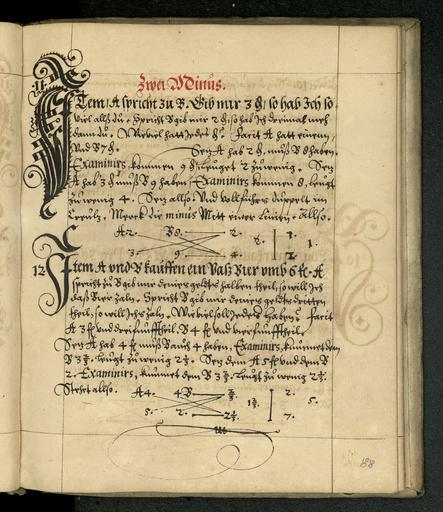 Zwei Minus.
11
Item / A spricht zu B. Gib mir 3 / so hab Ich so
viel allß du. Spricht B gib mir 2 / so hab Ich dreimal mehr
dann du. Wieviel hatt Jeder. Facit A hatt einenn,
Vnd B 7. Setz A hab 2, muß B 8 haben
Examinirs kommen 9 / leuget 2 zuwenig. Setz
A hab 3 muß B 9 haben / Examinirs kommen 8, leugt
zuwenig 4. Setz allso. Vnd vollführs duppelt im
Creutz. Merck die minus Mitt einer Linien. Allso.
A 2. B 8. 2.
2. 1. 1.
3. 9. 4. 2.
12
Item A vnd B kauffen ein Vaß Bier vmb 6 fl. A
spricht zu B gib mir deines geldes halben theil, so will Ich
daß Bier zaln. Spricht B gib mir deines geldes dritten
theil, so will Ichs zaln. Wieviel soll Jeder haben? Facit
A 3 fl vnd drei funfftheil. B 4 fl vnd vier funfftheil.
Setz A hab 4 fl muß B auch 4 haben. Examinirs, kummet dem
B leugt zu wenig Setz dem A 5 fl vnd dem B
2. Examinirs, kummet dem B leugt zu wenig
Stehet allso. A 4. 4 B
2.
5.
5. 2. 7.
88